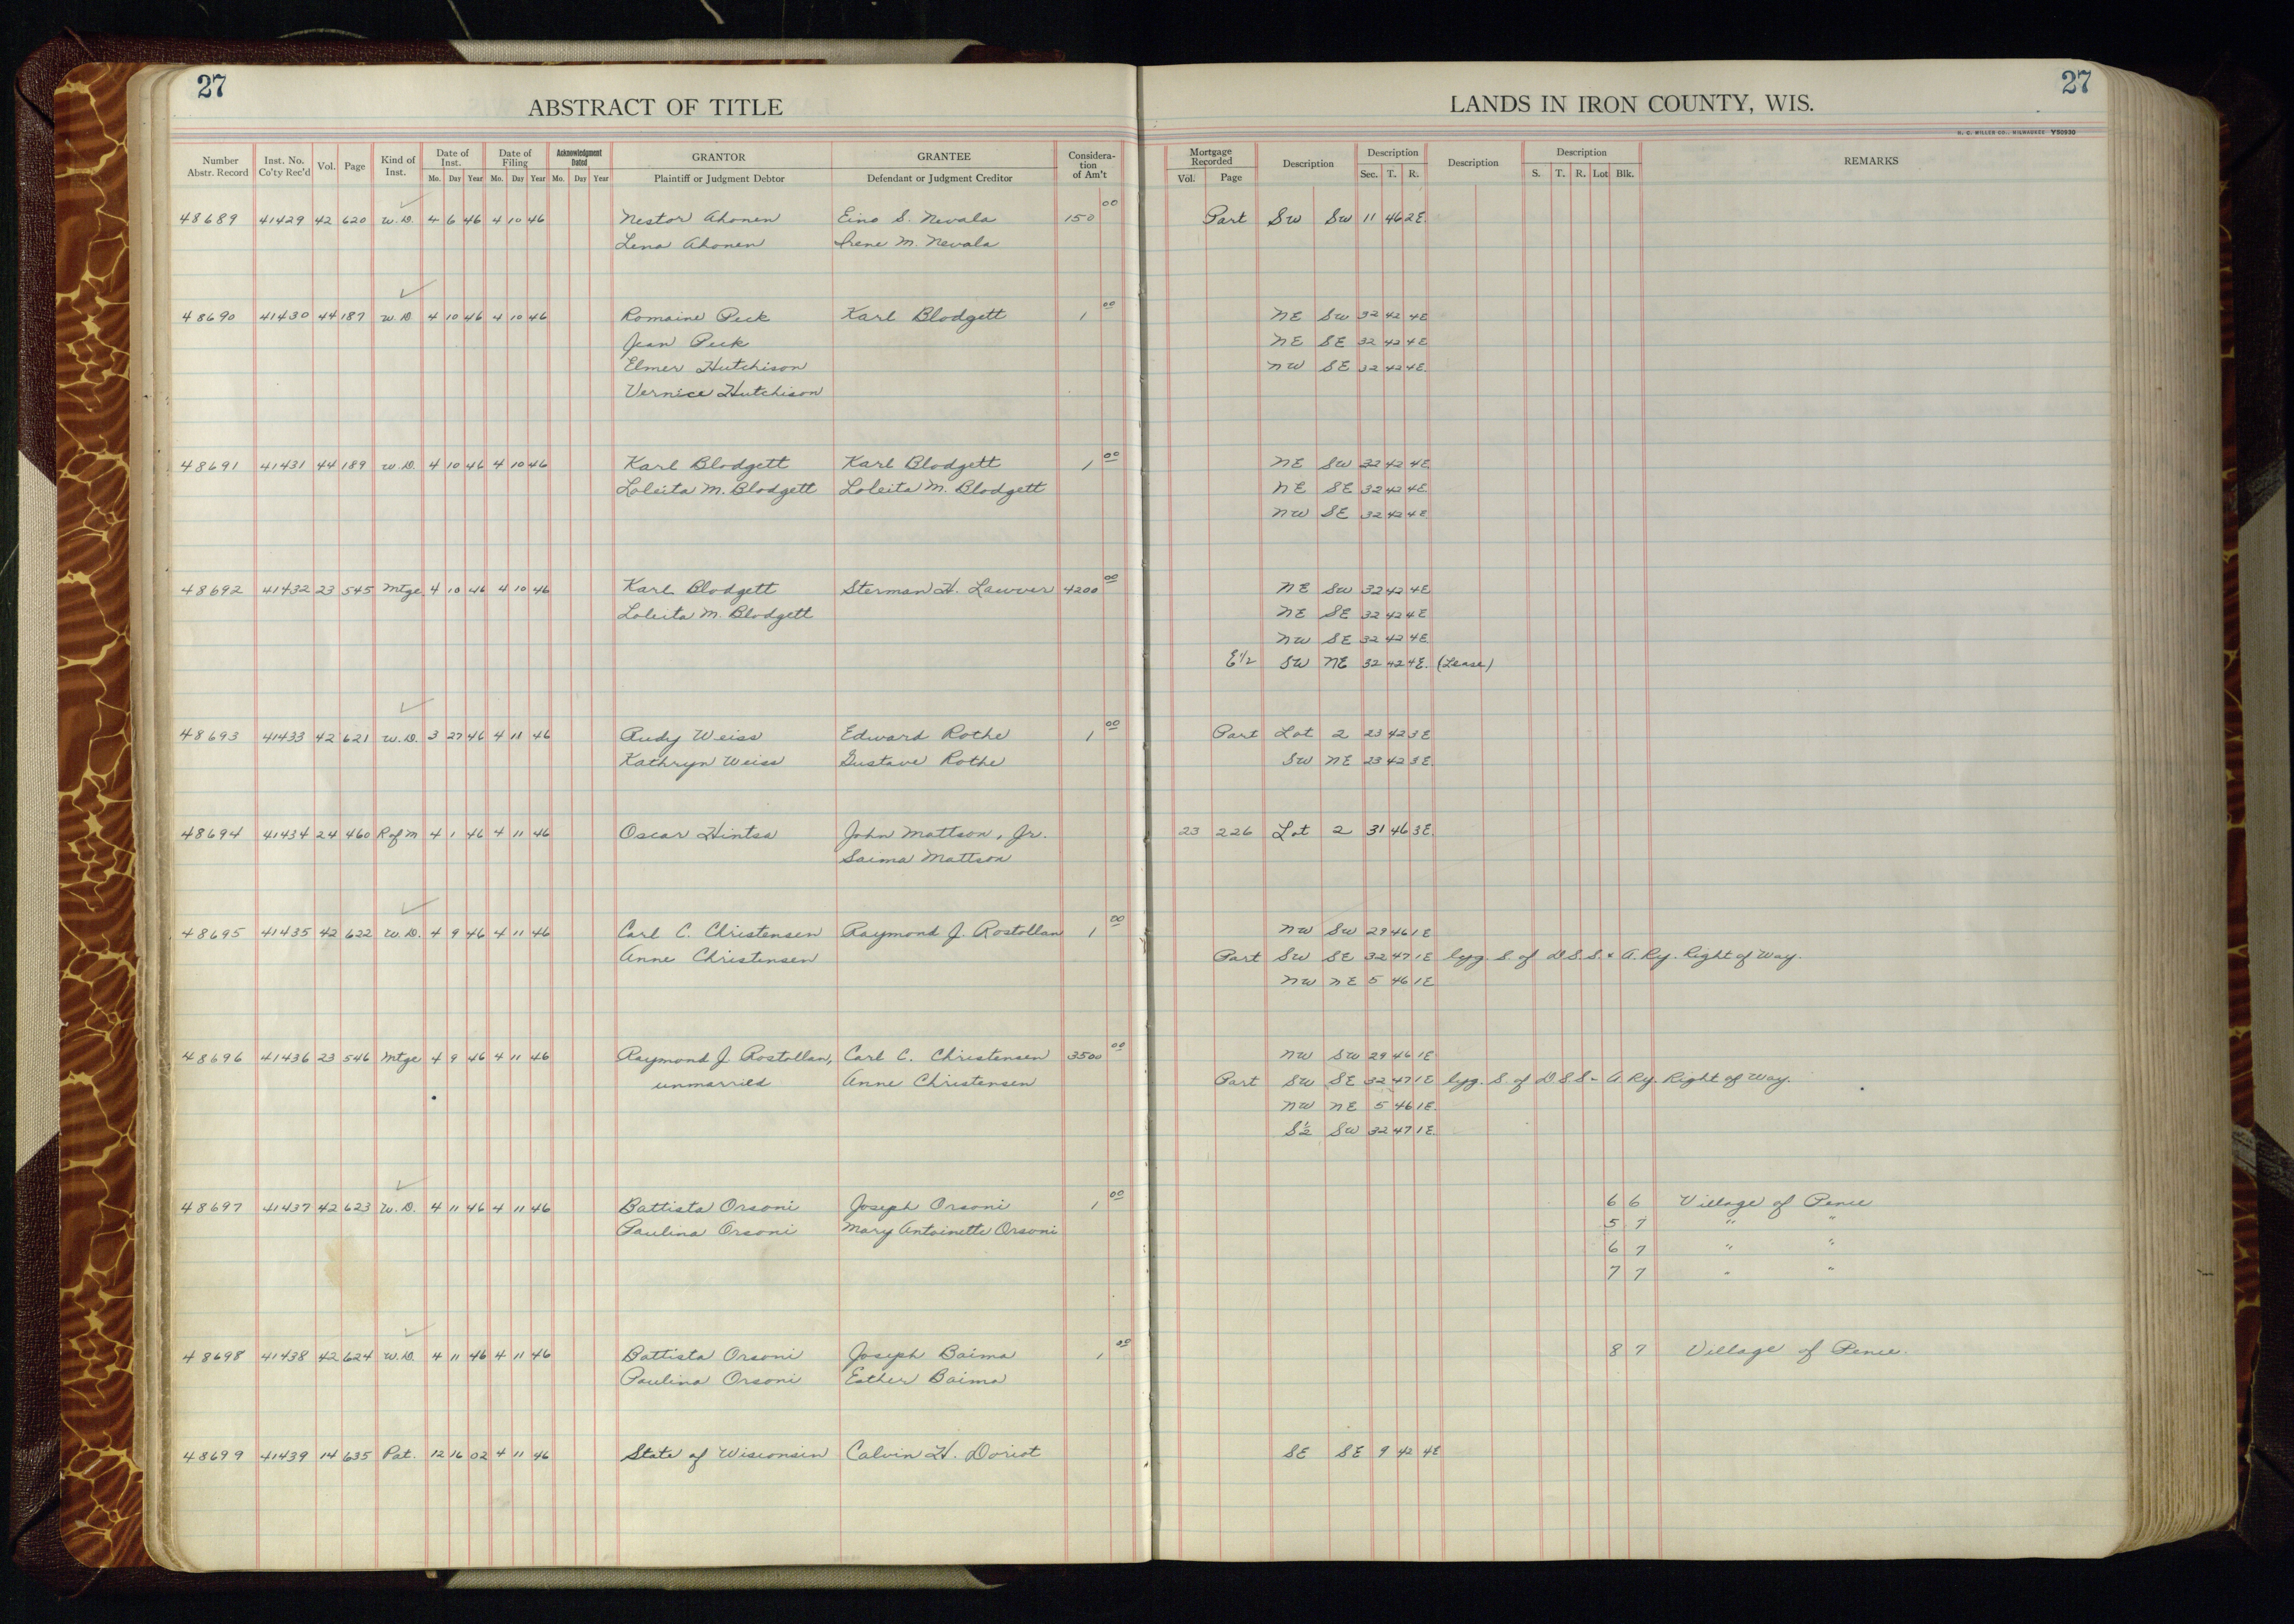 27
27
ABSTRACT OF TITLE
LANDS IN IRON COUNTY, WIS.
H. C. MILLER CO., MILWAUKEE Y50930
Number Abstr. Record Inst. No. Co'ty Rec'd Vol. Page Kind of Inst. Date of Inst. Mo. Day Year Date of Filing Mo. Day Year Acknowledgment Dated Mo. Day Year GRANTOR Plaintiff or Judgment Debtor GRANTEE Defendant or Judgment Creditor Consideration of Am't Mortgage Recorded Vol. Page Description Description Sec. T. R. Description Description S. T. R. Lot Blk. REMARKS
48689 41429 42 620 W.D. 4 6 46 4 10 46 Nestor Ahonen Eino S. Nevala 150 00 Part SW SW 11 46 2E.
Lena Ahonen Irene M. Nevala
48690 41430 44 187 W.D 4 10 46 4 10 46 Romaine Peck Karl Blodgett 1 00 NE SW 32 42 4E
Jean Peck NE SE 32 42 4E
Elmer Hutchison NW SE 32 42 4E.
Vernice Hutchison
48691 41431 44 189 W.D. 4 10 46 4 10 46 Karl Blodgett Karl Blodgett 1 00 NE SW 32 42 4E
Loleita M. Blodgett Loleita M. Blodgett NE SE 32 42 4E
NW SE 32 42 4E
48692 41432 23 545 Mtge 4 10 46 4 10 46 Karl Blodgett Sterman H. Lawver 4200 00 NE SW 32 42 4E
Loleita M. Blodgett NE SE 32 42 4E
NW SE 32 42 4E
E½ SW NE 32 42 4E. (Lease)
48693 41433 42 621 W.D. 3 27 46 4 11 46 Rudy Weiss Edward Rothe 1 00 Part Lot 2 23 42 3E
Kathryn Weiss Gustave Rothe SW NE 23 42 3E
48694 41434 24 460 R of M 4 1 46 4 11 46 Oscar Hintsa John Mattson, Jr. 23 226 Lot 2 31 46 3E.
Saima Mattson
48695 41435 42 622 W.D. 4 9 46 4 11 46 Carl C. Christensen Raymond J. Rostollan 1 00 NW SW 29 46 1E
Anne Christensen Part SW SE 32 47 1E lyg. S. of D.S.S. & A. Ry. Right of Way.
NW NE 5 46 1E
48696 41436 23 546 Mtge 4 9 46 4 11 46 Raymond J. Rostollan, Carl C. Christensen 3500 00 NW SW 29 46 1E
unmarried Anne Christensen Part SW SE 32 47 1E lyg. S. of D.S.S. & A. Ry. Right of Way.
NW NE 5 46 1E.
S½ SW 32 47 1E.
48697 41437 42 623 W.D. 4 11 46 4 11 46 Battista Orsoni Joseph Orsoni 1 00 6 6 Village of Pence
Paulina Orsoni Mary Antoinette Orsoni 5 7 " "
6 7 " "
7 7 " "
48698 41438 42 624 W.D. 4 11 46 4 11 46 Battista Orsoni Joseph Baima 1 00 8 7 Village of Pence.
Paulina Orsoni Esther Baima
48699 41439 14 635 Pat. 12 16 02 4 11 46 State of Wisconsin Calvin H. Doriot SE SE 9 42 4E